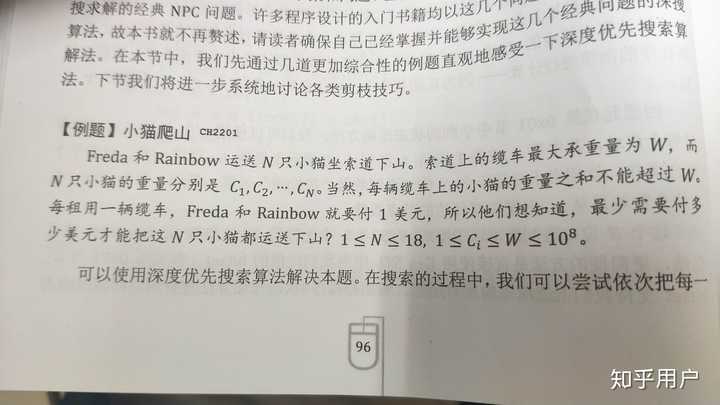 搜求解的经典 NPC 问题。许多程序设计的入门书籍均以这几个问
算法，故本书就不再赘述，请读者确保自己已经掌握并能够实现这几个经典问题的深搜
解法。在本节中，我们先通过几道更加综合性的例题直观地感受一下深度优先搜索算
法。下节我们将进一步系统地讨论各类剪枝技巧。
【例题】小猫爬山 CH2201
Freda 和 Rainbow 运送 N 只小猫坐索道下山。索道上的缆车最大承重量为 W，而
N 只小猫的重量分别是 C₁, C₂, ⋯, C_N。当然，每辆缆车上的小猫的重量之和不能超过 W。
每租用一辆缆车，Freda 和 Rainbow 就要付 1 美元，所以他们想知道，最少需要付多
少美元才能把这 N 只小猫都运送下山？1 ≤ N ≤ 18, 1 ≤ C_i ≤ W ≤ 10⁸。
可以使用深度优先搜索算法解决本题。在搜索的过程中，我们可以尝试依次把每一
96
知乎用户